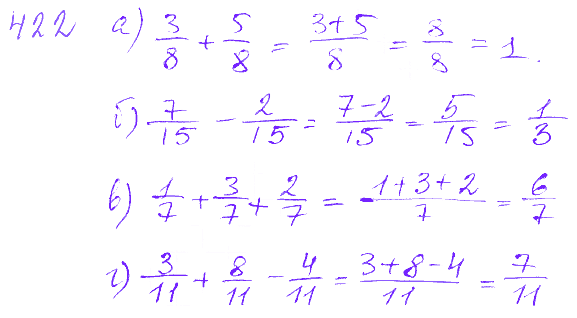 422 а) 3/8 + 5/8 = (3+5)/8 = 8/8 = 1.
б) 7/15 - 2/15 = (7-2)/15 = 5/15 = 1/3
в) 1/7 + 3/7 + 2/7 = (1+3+2)/7 = 6/7
г) 3/11 + 8/11 - 4/11 = (3+8-4)/11 = 7/11